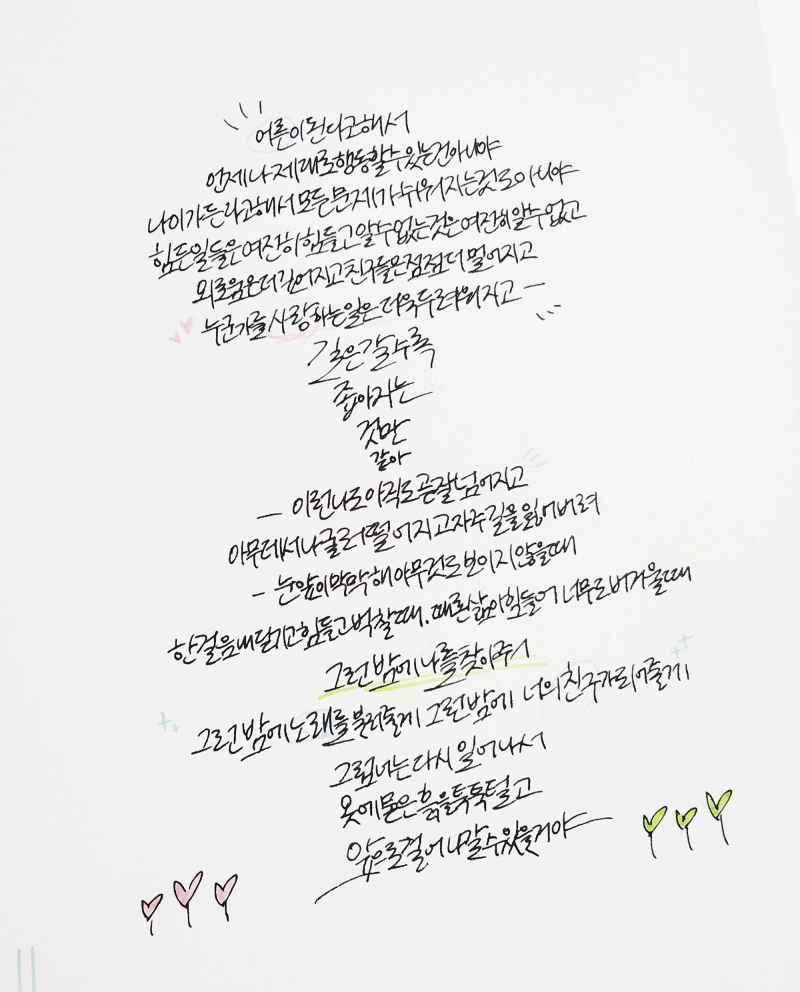 어른이 된다고 해서
언제나 제대로 행동할 수 있는 건 아니야
나이가 든다고 해서 모든 문제가 쉬워지는 것도 아니야
힘든 일들은 여전히 힘들고 알 수 없는 것은 여전히 알 수 없고
외로움은 더 깊어지고 친구들은 점점 더 멀어지고
누군가를 사랑하는 일은 더욱 두려워지고 —
길은 갈수록
좁아지는
것만
같아
— 이런 나도 아직도 곧잘 넘어지고
아무데서나 굴러 떨어지고 자주 길을 잃어버려
- 눈앞이 막막해 아무것도 보이지 않을 때
한걸음 내딛기고 힘들고 벅찰 때. 때론 삶이 힘들어 너무도 버거울 때
그런 밤에 나를 찾아주시
그런 밤에 노래를 불러줄게 그런 밤에 너의 친구가 되어줄게
그럼 너는 다시 일어나서
옷에 묻은 흙을 툭툭 털고
앞으로 걸어나갈 수 있을거야